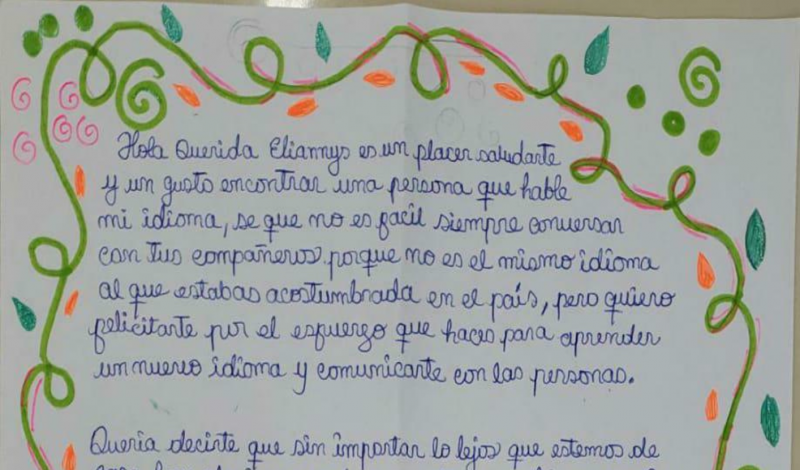 Hola Querida Eliannys es un placer saludarte
y un gusto encontrar una persona que hable
mi idioma, se que no es facil siempre conversar
con tus compañeros porque no es el mismo idioma
al que estabas acostumbrada en el país, pero quiero
felicitarte por el esfuerzo que haces para aprender
un nuevo idioma y comunicarte con las personas.
Queria decirte que sin importar lo lejos que estemos de